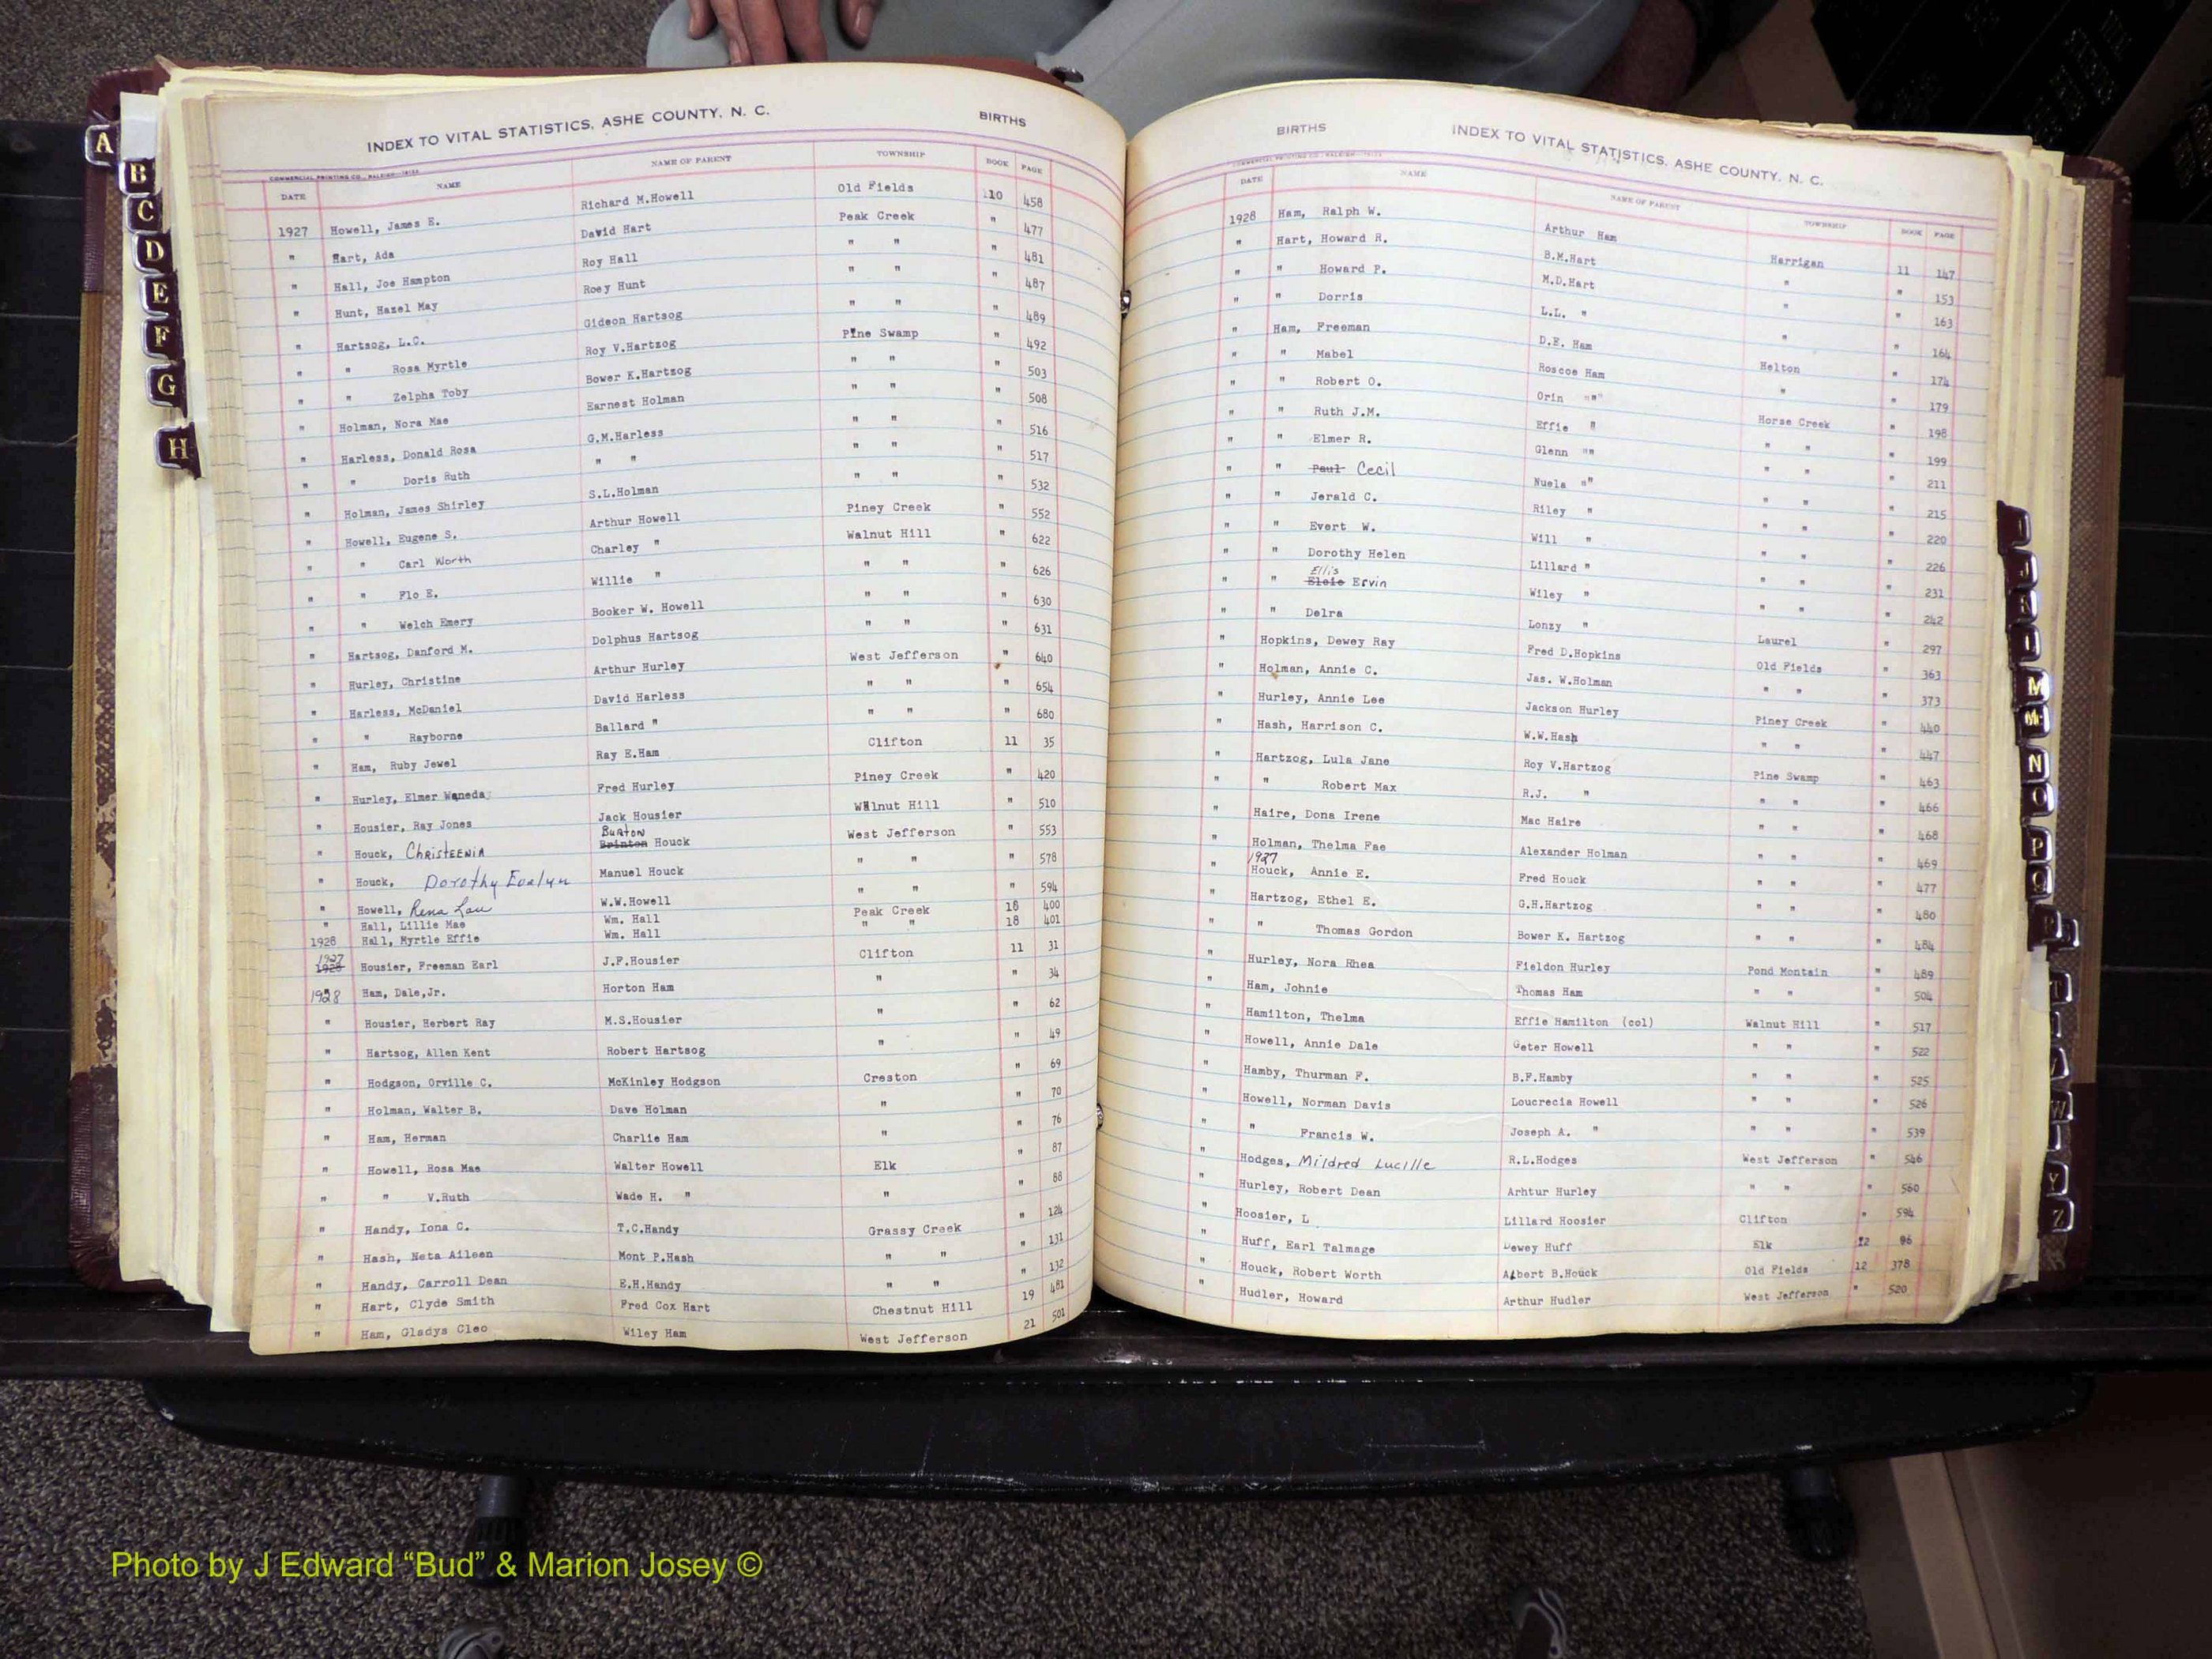 INDEX TO VITAL STATISTICS, ASHE COUNTY, N. C. BIRTHS
COMMERCIAL PRINTING CO., RALEIGH
DATE NAME NAME OF PARENT TOWNSHIP BOOK PAGE
1927 Howell, James E. Richard M.Howell Old Fields 10 458
" Hart, Ada David Hart Peak Creek " 477
" Hall, Joe Hampton Roy Hall " " " 481
" Hunt, Hazel May Roey Hunt " " " 487
" Hartsog, L.C. Gideon Hartsog " " " 489
" " Rosa Myrtle Roy V.Hartzog Pine Swamp " 492
" " Zelpha Toby Bower K.Hartzog " " " 503
" Holman, Nora Mae Earnest Holman " " " 508
" Harless, Donald Rosa G.M.Harless " " " 516
" " Doris Ruth " " " " " 517
" Holman, James Shirley S.L.Holman " " " 532
" Howell, Eugene S. Arthur Howell Piney Creek " 552
" " Carl Worth Charley " Walnut Hill " 622
" " Flo E. Willie " " " " 626
" " Welch Emery Booker W. Howell " " " 630
" Hartsog, Danford M. Dolphus Hartsog " " " 631
" Hurley, Christine Arthur Hurley West Jefferson " 640
" Harless, McDaniel David Harless " " " 654
" " Rayborne Ballard " " " " 680
" Ham, Ruby Jewel Ray E.Ham Clifton 11 35
" Hurley, Elmer Waneda Fred Hurley Piney Creek " 420
" Housier, Ray Jones Jack Housier Walnut Hill " 510
" Houck, Christeenia Burton Brinton Houck West Jefferson " 553
" Houck, Dorothy Evelyn Manuel Houck " " " 578
" Howell, Rena Lou W.W.Howell " " " 594
" Hall, Lillie Mae Wm. Hall Peak Creek 18 400
1928 Hall, Myrtle Effie Wm. Hall " " 18 401
1927 1928 Housier, Freeman Earl J.F.Housier Clifton 11 31
1928 Ham, Dale,Jr. Horton Ham " " 34
" Housier, Herbert Ray M.S.Housier " " 62
" Hartsog, Allen Kent Robert Hartsog " " 49
" Hodgson, Orville C. McKinley Hodgson Creston " 69
" Holman, Walter B. Dave Holman " " 70
" Ham, Herman Charlie Ham " " 76
" Howell, Rosa Mae Walter Howell Elk " 87
" " V.Ruth Wade H. " " " 88
" Handy, Iona C. T.C.Handy Grassy Creek " 124
" Hash, Neta Aileen Mont P.Hash " " " 131
" Handy, Carroll Dean E.H.Handy " " " 132
" Hart, Clyde Smith Fred Cox Hart Chestnut Hill 19 481
" Ham, Gladys Cleo Wiley Ham West Jefferson 21 501
BIRTHS INDEX TO VITAL STATISTICS, ASHE COUNTY, N. C.
COMMERCIAL PRINTING CO., RALEIGH
DATE NAME NAME OF PARENT TOWNSHIP BOOK PAGE
1928 Ham, Ralph W. Arthur Ham Harrigan 11 147
" Hart, Howard R. B.M.Hart " " 153
" " Howard P. M.D.Hart " " 163
" " Dorris L.L. " " " 164
" Ham, Freeman D.E. Ham Helton " 174
" " Mabel Roscoe Ham " " 179
" " Robert O. Orin " Horse Creek " 198
" " Ruth J.M. Effie " " " " 199
" " Elmer R. Glenn " " " " 211
" " Paul Cecil Nuela " " " " 215
" " Jerald C. Riley " " " " 220
" " Evert W. Will " " " " 226
" " Dorothy Helen Lillard " " " " 231
" " Ellis Elsie Ervin Wiley " " " " 242
" " Delra Lonzy " Laurel " 297
" Hopkins, Dewey Ray Fred D.Hopkins Old Fields " 363
" Holman, Annie C. Jas. W.Holman " " " 373
" Hurley, Annie Lee Jackson Hurley Piney Creek " 440
" Hash, Harrison C. W.W.Hash " " " 447
" Hartzog, Lula Jane Roy V.Hartzog Pine Swamp " 463
" " Robert Max R.J. " " " " 466
" Haire, Dona Irene Mac Haire " " " 468
" Holman, Thelma Fae Alexander Holman " " " 469
" 1927 Houck, Annie E. Fred Houck " " " 477
" Hartzog, Ethel E. G.H.Hartzog " " " 480
" " Thomas Gordon Bower K. Hartzog " " " 484
" Hurley, Nora Rhea Fieldon Hurley Pond Montain " 489
" Ham, Johnie Thomas Ham " " " 504
" Hamilton, Thelma Effie Hamilton (col) Walnut Hill " 517
" Howell, Annie Dale Geter Howell " " " 522
" Hamby, Thurman F. B.F.Hamby " " " 525
" Howell, Norman Davis Loucrecia Howell " " " 526
" " Francis W. Joseph A. " " " " 539
" Hodges, Mildred Lucille R.L.Hodges West Jefferson " 546
" Hurley, Robert Dean Arhtur Hurley " " " 560
" Hoosier, L Lillard Hoosier Clifton " 594
" Huff, Earl Talmage Dewey Huff Elk 12 86
" Houck, Robert Worth Albert B.Houck Old Fields 12 378
" Hudler, Howard Arthur Hudler West Jefferson " 520
A
B
C
D
E
F
G
H
M
Mc
N
O
P
Q
R
T
W
Y
Z
Photo by J Edward “Bud” & Marion Josey ©